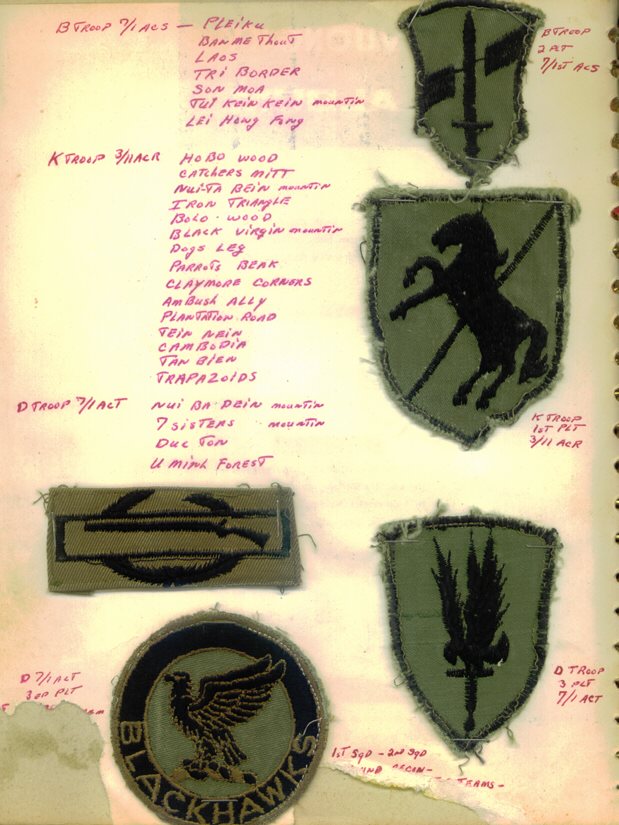 B TROOP 7/1 ACS — PLEIKU
BAN ME THOUT
LAOS
TRI BORDER
SON MOA
TUI KEIN KEIN MOUNTIN
LEI HONG FONG
B TROOP
2 PLT
7/1ST ACS
K TROOP 3/11 ACR HOBO WOOD
CATCHERS MITT
NUI-TA BEIN MOUNTIN
IRON TRIANGLE
BOLO-WOOD
BLACK VIRGIN MOUNTIN
DOGS LEG
PARROTS BEAK
CLAYMORE CORNERS
AMBUSH ALLY
PLANTATION ROAD
TEIN NEIN
CAMBODIA
TAN BIEN
TRAPAZOIDS
K TROOP
1ST PLT
3/11 ACR
D TROOP 7/1 ACT NUI BA DEIN MOUNTIN
7 SISTERS MOUNTIN
DUC TON
U MINH FOREST
D 7/1 ACT
3RD PLT
BLACKHAWKS
D TROOP
3 PLT
7/1 ACT
1ST SQD - 2ND SQD
TEAMS-